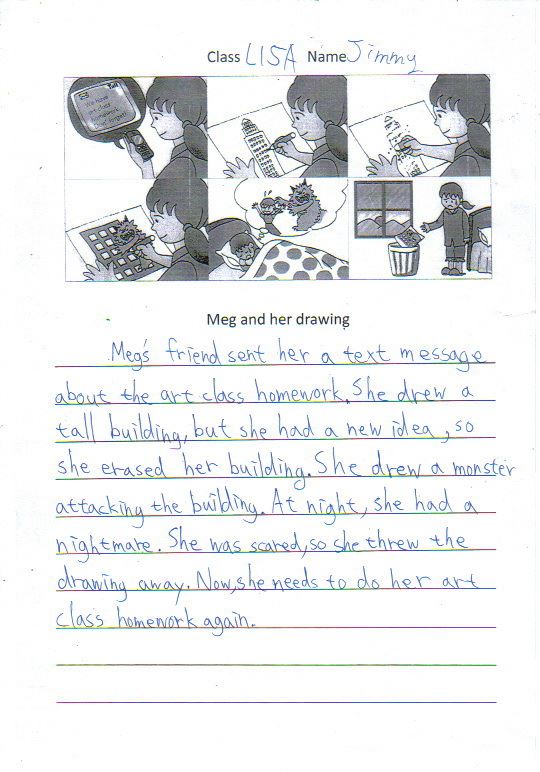 Class LISA Name Jimmy
We have
art class
homework
Don't forget!
Meg and her drawing
Meg's friend sent her a text message
about the art class homework. She drew a
tall building, but she had a new idea, so
she erased her building. She drew a monster
attacking the building. At night, she had a
nightmare. She was scared, so she threw the
drawing away. Now, she needs to do her art
class homework again.